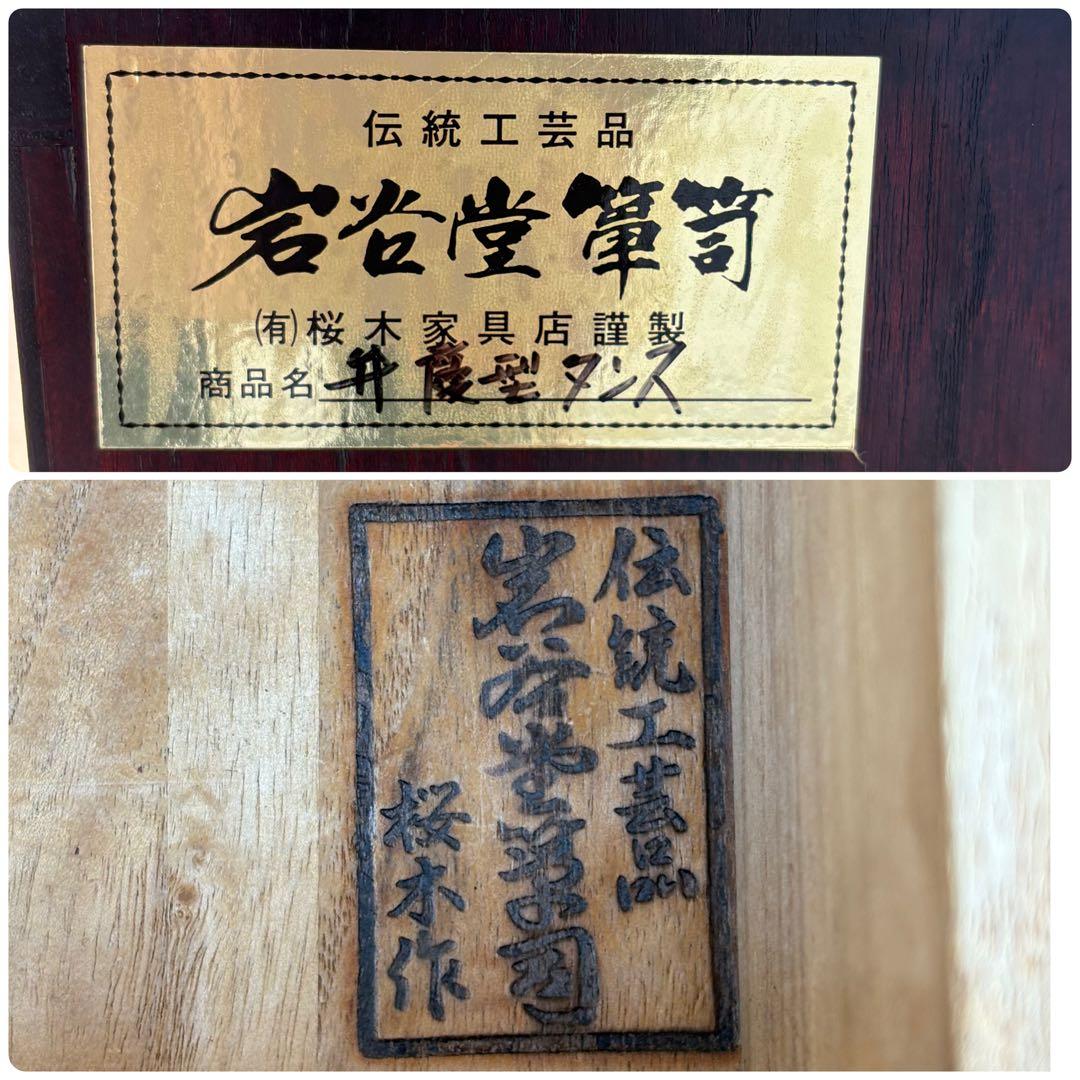 伝統工芸品
岩谷堂箪笥
(有)桜木家具店謹製
商品名 弁慶型タンス
伝統工芸品
岩谷堂箪笥
桜木作